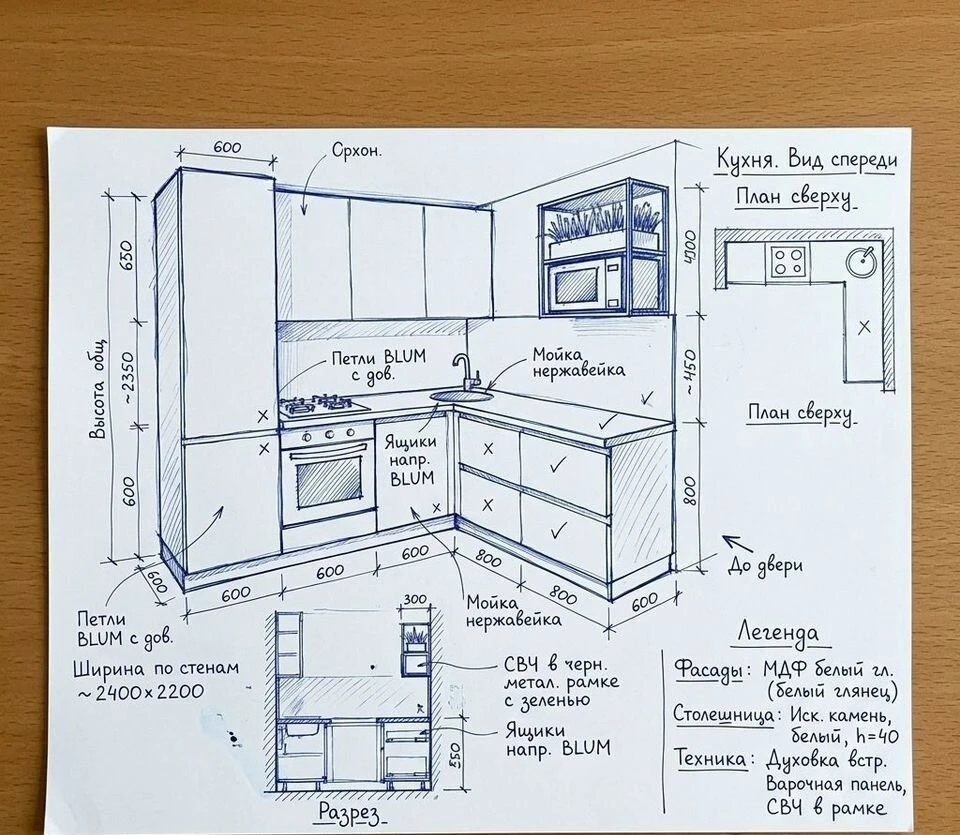 600
Срхон.
Кухня. Вид спереди
План сверху
650
Высота общ
~2350
600
4100
~1150
800
Петли BLUM
с дов.
Мойка
нержавейка
Ящики
напр.
BLUM
x
x
x
x
x
x
План сверху
До двери
600
600
600
600
800
800
600
Петли
BLUM с дов.
Ширина по стенам
~ 2400 x 2200
300
Мойка
нержавейка
СВЧ в черн.
метал. рамке
с зеленью
Ящики
напр. BLUM
Разрез
Легенда
Фасады: МДФ белый гл.
(белый глянец)
Столешница: Иск. камень,
белый, h=40
Техника: Духовка встр.
Варочная панель,
СВЧ в рамке